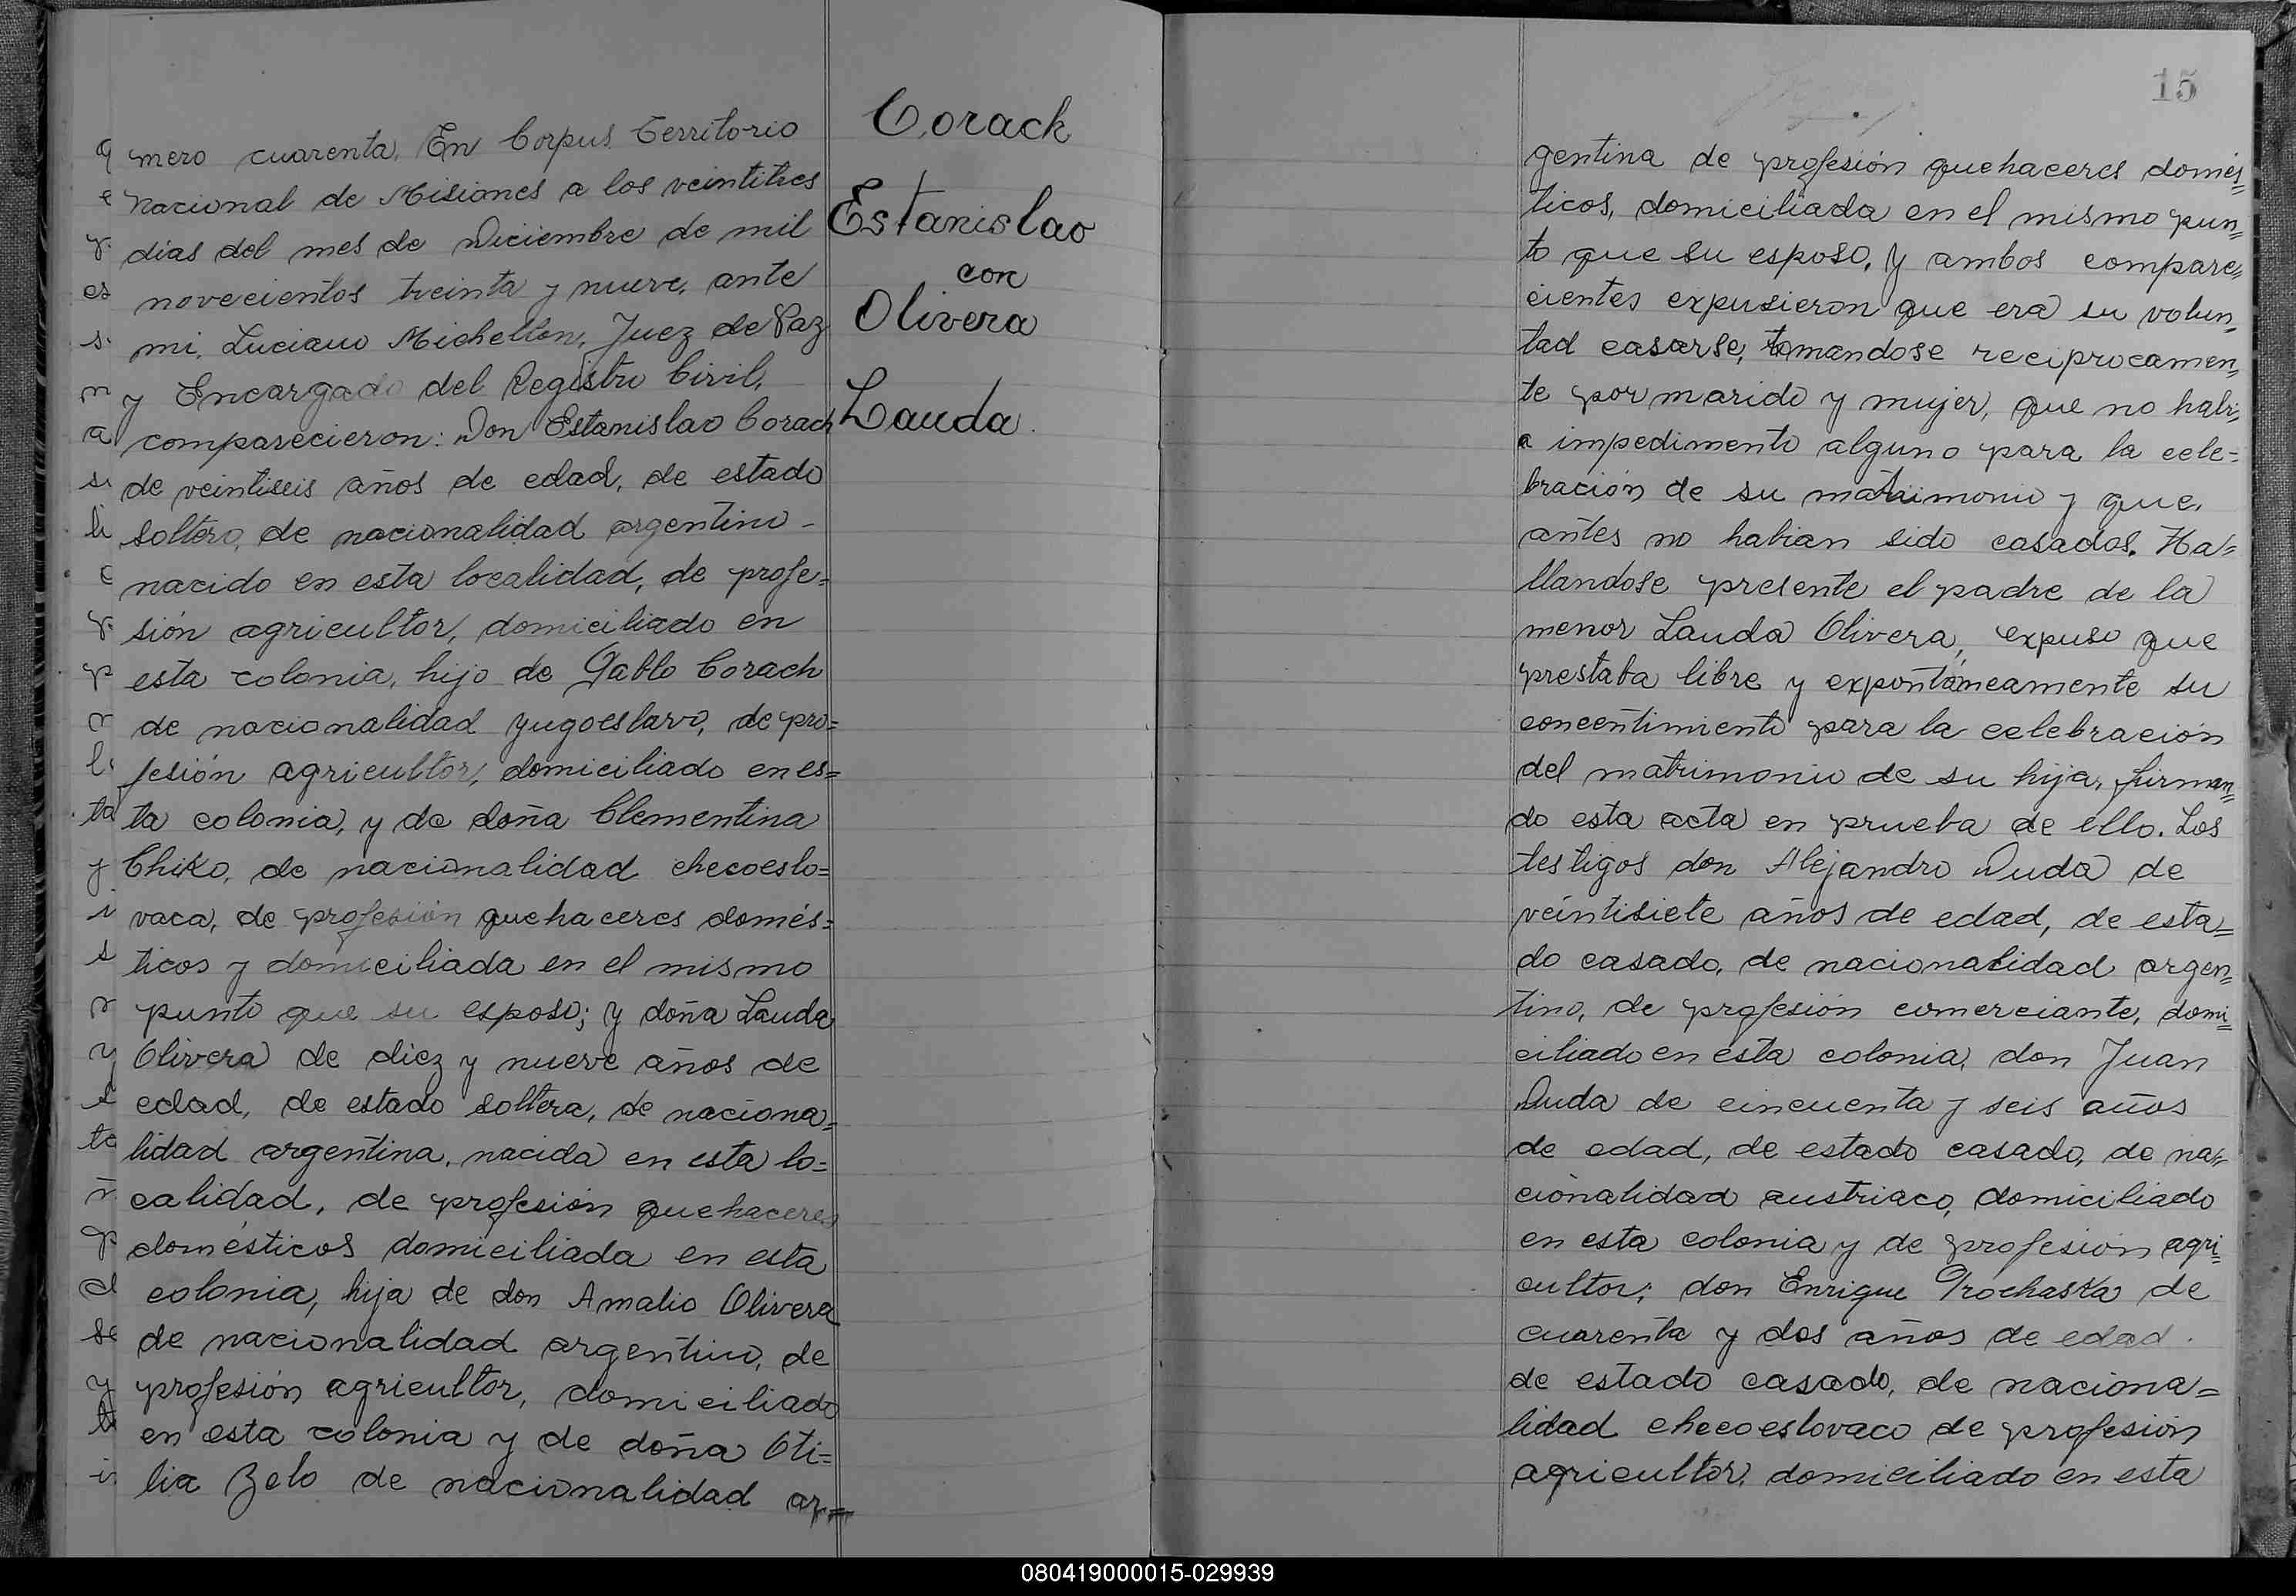 mero cuarenta. En Corpus Territorio
Nacional de Misiones a los veintitres
días del mes de Diciembre de mil
novecientos treinta y nueve, ante
mi, Luciano Michelton, Juez de Paz
y Encargado del Registro Civil,
comparecieron: Don Estanislao Corach
de veintiseis años de edad, de estado
soltero, de nacionalidad argentino -
nacido en esta localidad, de profe=
sión agricultor, domiciliado en
esta colonia, hijo de Pablo Corach
de nacionalidad yugoeslavo, de pro=
fesión agricultor, domiciliado en es=
ta colonia, y de doña Clementina
Chiko, de nacionalidad checoeslo=
vaca, de profesión quehaceres domés=
ticos y domiciliada en el mismo
punto que su esposo; y doña Lauda
Olivera de diez y nueve años de
edad, de estado soltera, de naciona=
lidad argentina, nacida en esta lo=
calidad, de profesión quehaceres
domésticos domiciliada en esta
colonia, hija de don Amalio Olivera
de nacionalidad argentino, de
profesión agricultor, domiciliado
en esta colonia y de doña Oti=
lia Zelo de nacionalidad ar=
Corach
Estanislao
con
Olivera
Lauda.
15
gentina de profesión quehaceres domés=
ticos, domiciliada en el mismo pun=
to que su esposo. Y ambos compare=
cientes expusieron que era su volun=
tad casarse, tomandose reciprocamen=
te por marido y mujer, que no habi=
a impedimento alguno para la cele=
bración de su matrimonio y que
antes no habian sido casados. Ha=
llandose presente el padre de la
menor Lauda Olivera, expuso que
prestaba libre y expontáneamente su
concentimiento para la celebración
del matrimonio de su hija, firman=
do esta acta en prueba de ello. Los
testigos don Alejandro Duda de
veintisiete años de edad, de esta=
do casado, de nacionalidad argen=
tino, de profesión comerciante, domi=
ciliado en esta colonia, don Juan
Duda de cincuenta y seis años
de edad, de estado casado, de na=
cionalidad austriaco, domiciliado
en esta colonia y de profesión agri=
cultor; don Enrique Prochaska de
cuarenta y dos años de edad.
de estado casado, de naciona=
lidad checoeslovaco de profesión
agricultor, domiciliado en esta
080419000015-029939